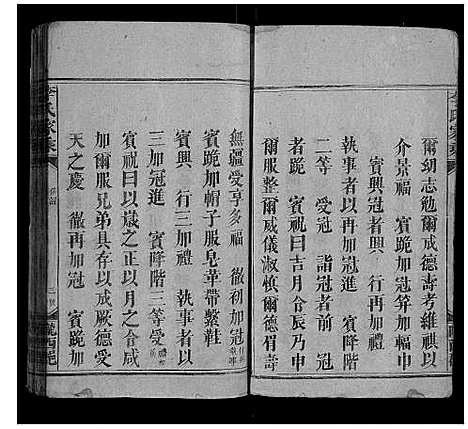 爾幼志勉爾成德壽考維祺以
介景福　賓跪加冠笄加巾
賓興冠者興　行再加禮
執事者以再加冠進　賓降階
二等　受冠　詣冠者前　冠
者跪　賓祝曰吉月令辰乃申
爾服整爾威儀淑慎爾德眉壽
無疆受享多福　徹初加冠
賓跪加帽子服皂革帶繫鞋
賓興　行三加禮　執事者以
三加冠進　賓降階三等受
賓祝曰以歲之正以月之令咸
加爾服兄弟具存以成厥德受
天之慶　徹再加冠　賓跪加
李氏家乘
隴西邑